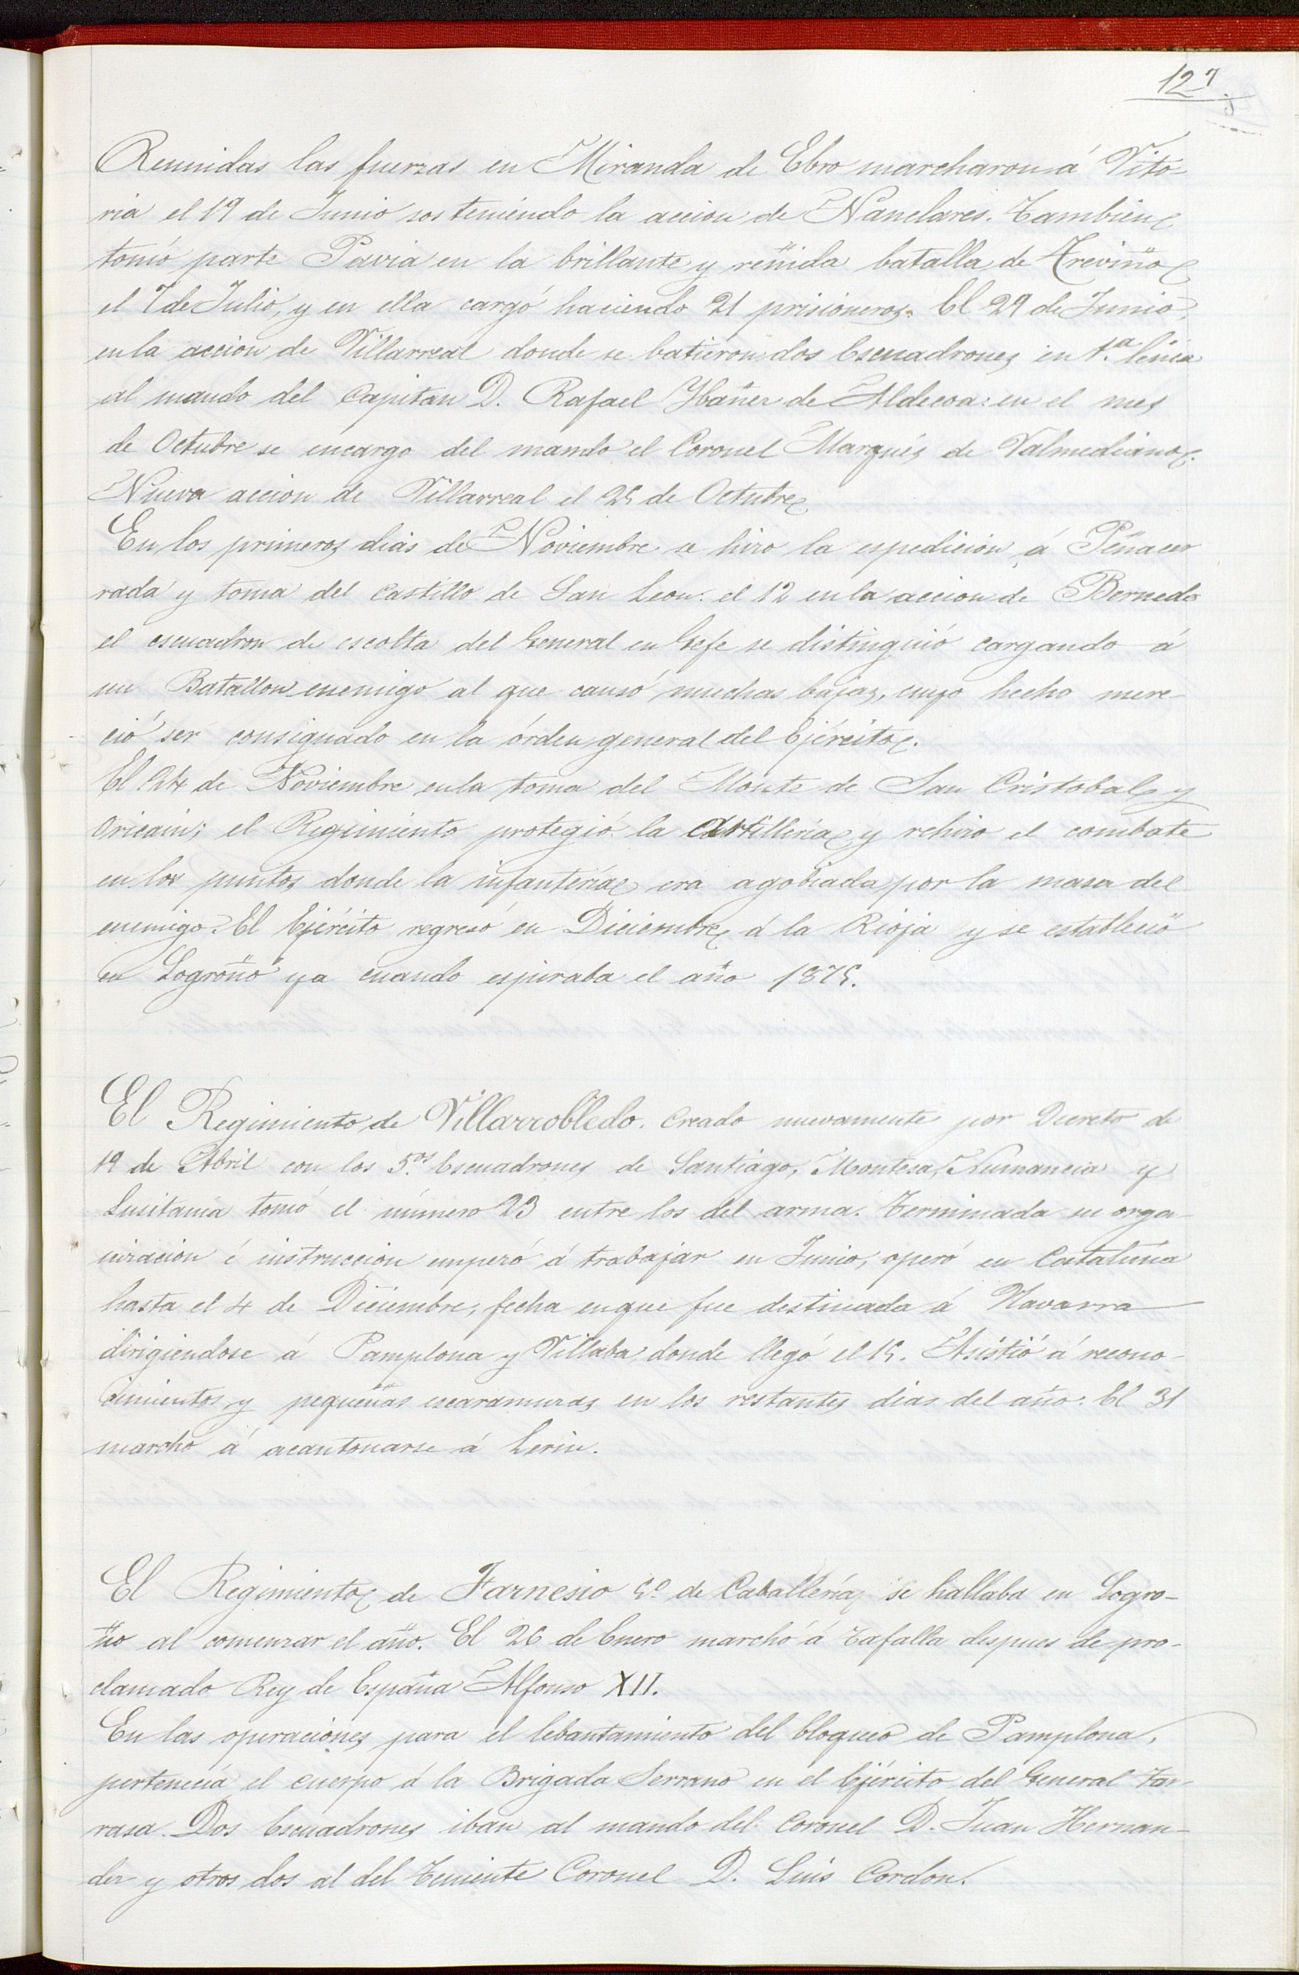 127
Reunidas las fuerzas en Miranda de Ebro marcharon á Vito-
ria el 19 de Junio sosteniendo la accion de Nanclares. Tambien
tomó parte Pavia en la brillante y reñida batalla de Treviño
el 7 de Julio, y en ella cargó haciendo 21 prisioneros. El 29 de Junio,
en la accion de Villarreal donde se batieron dos Escuadrones en 1.ª linea
al mando del Capitan D. Rafael Ybañez de Aldecoa: en el mes
de Octubre se encargo del mando el Coronel Marqués de Valmediano.
Nueva accion de Villarreal el 25 de Octubre
En los primeros dias de Noviembre se hizo la espedición á Peñacer
rada y toma del castillo de San Leon. el 12 en la accion de Bernedo
el escuadron de escolta del General en Gefe se distinguió cargando á
un Batallon enemigo al que causó muchas bajas, cuyo hecho mere-
ció ser consignado en la órden general del Ejército.
El 24 de Noviembre en la toma del Monte de San Cristobal y
Oricain; el Regimiento protegió la Artilleria y rehizo el combate
en los puntos donde la infanteria era agobiada por la masa del
enemigo. El Ejército regresó en Diciembre á la Rioja y se estableció
en Logroño ya cuando espiraba el año 1875.
El Regimiento de Villarrobledo. Creado nuevamente por Decreto de
19 de Abril con los 5.os Escuadrones de Santiago, Montesa, Numancia y
Lusitania tomó el número 23 entre los del arma. Terminada su orga-
nizacion é instruccion empezó á trabajar en Junio, operó en Cataluña
hasta el 4 de Diciembre, fecha en que fue destinada á Navarra
dirigiendose á Pamplona y Villaba donde llegó el 15. Asistió á recono-
cimientos y pequeñas escaramuzas en los restantes dias del año. El 31
marchó á acantonarse á Lerin.
El Regimiento de Farnesio 5º de Caballería se hallaba en Logro-
ño al comenzar el año. El 26 de Enero marchó á Tafalla despues de pro-
clamado Rey de España Alfonso XII.
En las operaciones para el lebantamiento del bloqueo de Pamplona,
pertenecia el cuerpo á la Brigada Serrano en el Ejército del General Tar-
rasa. Dos Escuadrones iban al mando del Coronel D. Juan Hernan-
dez y otros dos al del Teniente Coronel D. Luis Cordon.